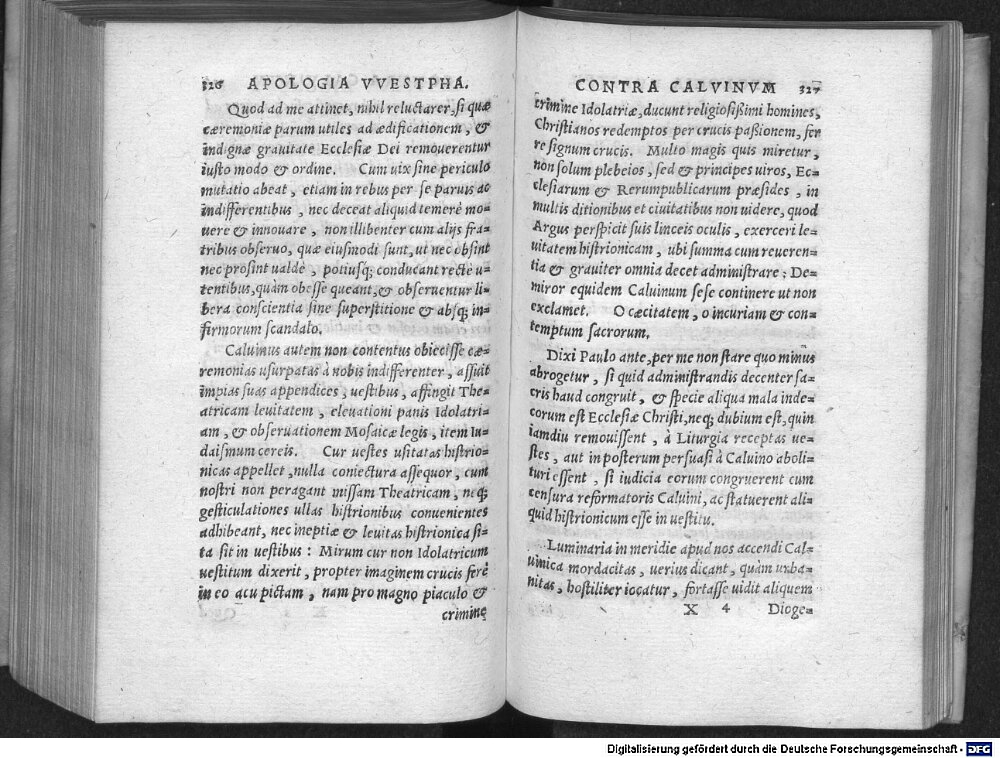 326 APOLOGIA VVESTPHA.
Quod ad me attinet, nihil reluctarer, si quæ
cæremoniæ parum utiles ad ædificationem, &
indignæ grauitate Ecclesiæ Dei remouerentur
iusto modo & ordine. Cum uix sine periculo
mutatio abeat, etiam in rebus per se paruis ac
indifferentibus, nec deceat aliquid temerè mo=
uere & innouare, non illibenter cum alijs fra=
tribus obseruo, quæ eiusmodi sunt, ut nec obsint
nec prosint ualde, potiusq; conducant rectè u=
tentibus, quàm obesse queant, & obseruentur li=
bera conscientia sine superstitione & absq; in=
firmorum scandalo.
Caluinus autem non contentus obiecisse cæ=
remonias usurpatas à nobis indifferenter, assuit
impias suas appendices, uestibus, affingit The=
atricam leuitatem, eleuationi panis Idolatri=
am, & obseruationem Mosaicæ legis, item Iu=
daismum cereis. Cur uestes usitatas histrio=
nicas appellet, nulla coniectura assequor, cum
nostri non peragant missam Theatricam, neq;
gesticulationes ullas histrionibus conuenientes
adhibeant, nec ineptiæ & leuitas histrionica si=
ta sit in uestibus: Mirum cur non Idolatricum
uestitum dixerit, propter imaginem crucis ferè
in eo acu pictam, nam pro magno piaculo &
crimine
CONTRA CALVINVM 327
crimine Idolatriæ, ducunt religiosißimi homines,
Christianos redemptos per crucis paßionem, fer
re signum crucis. Multo magis quis miretur,
non solum plebeios, sed & principes uiros, Ec=
clesiarum & Rerumpublicarum præsides, in
multis ditionibus et ciuitatibus non uidere, quod
Argus perspicit suis linceis oculis, exerceri le=
uitatem histrionicam, ubi summa cum reueren=
tia & grauiter omnia decet administrare: De=
miror equidem Caluinum sese continere ut non
exclamet. O cæcitatem, o incuriam & con=
temptum sacrorum.
Dixi Paulo ante, per me non stare quo minus
abrogetur, si quid administrandis decenter sa=
cris haud congruit, & specie aliqua mala inde=
corum est Ecclesiæ Christi, neq; dubium est, quin
iamdiu remouissent, à Liturgia receptas ue=
stes, aut in posterum persuasi à Caluino aboli=
turi essent, si iudicia eorum congruerent cum
censura reformatoris Caluini, ac statuerent ali=
quid histrionicum esse in uestitu.
Luminaria in meridie apud nos accendi Cal=
uinica mordacitas, uerius dicant, quàm urba=
nitas, hostiliter iocatur, fortasse uidit aliquem
X 4 Dioge=
Digitalisierung gefördert durch die Deutsche Forschungsgemeinschaft - DFG